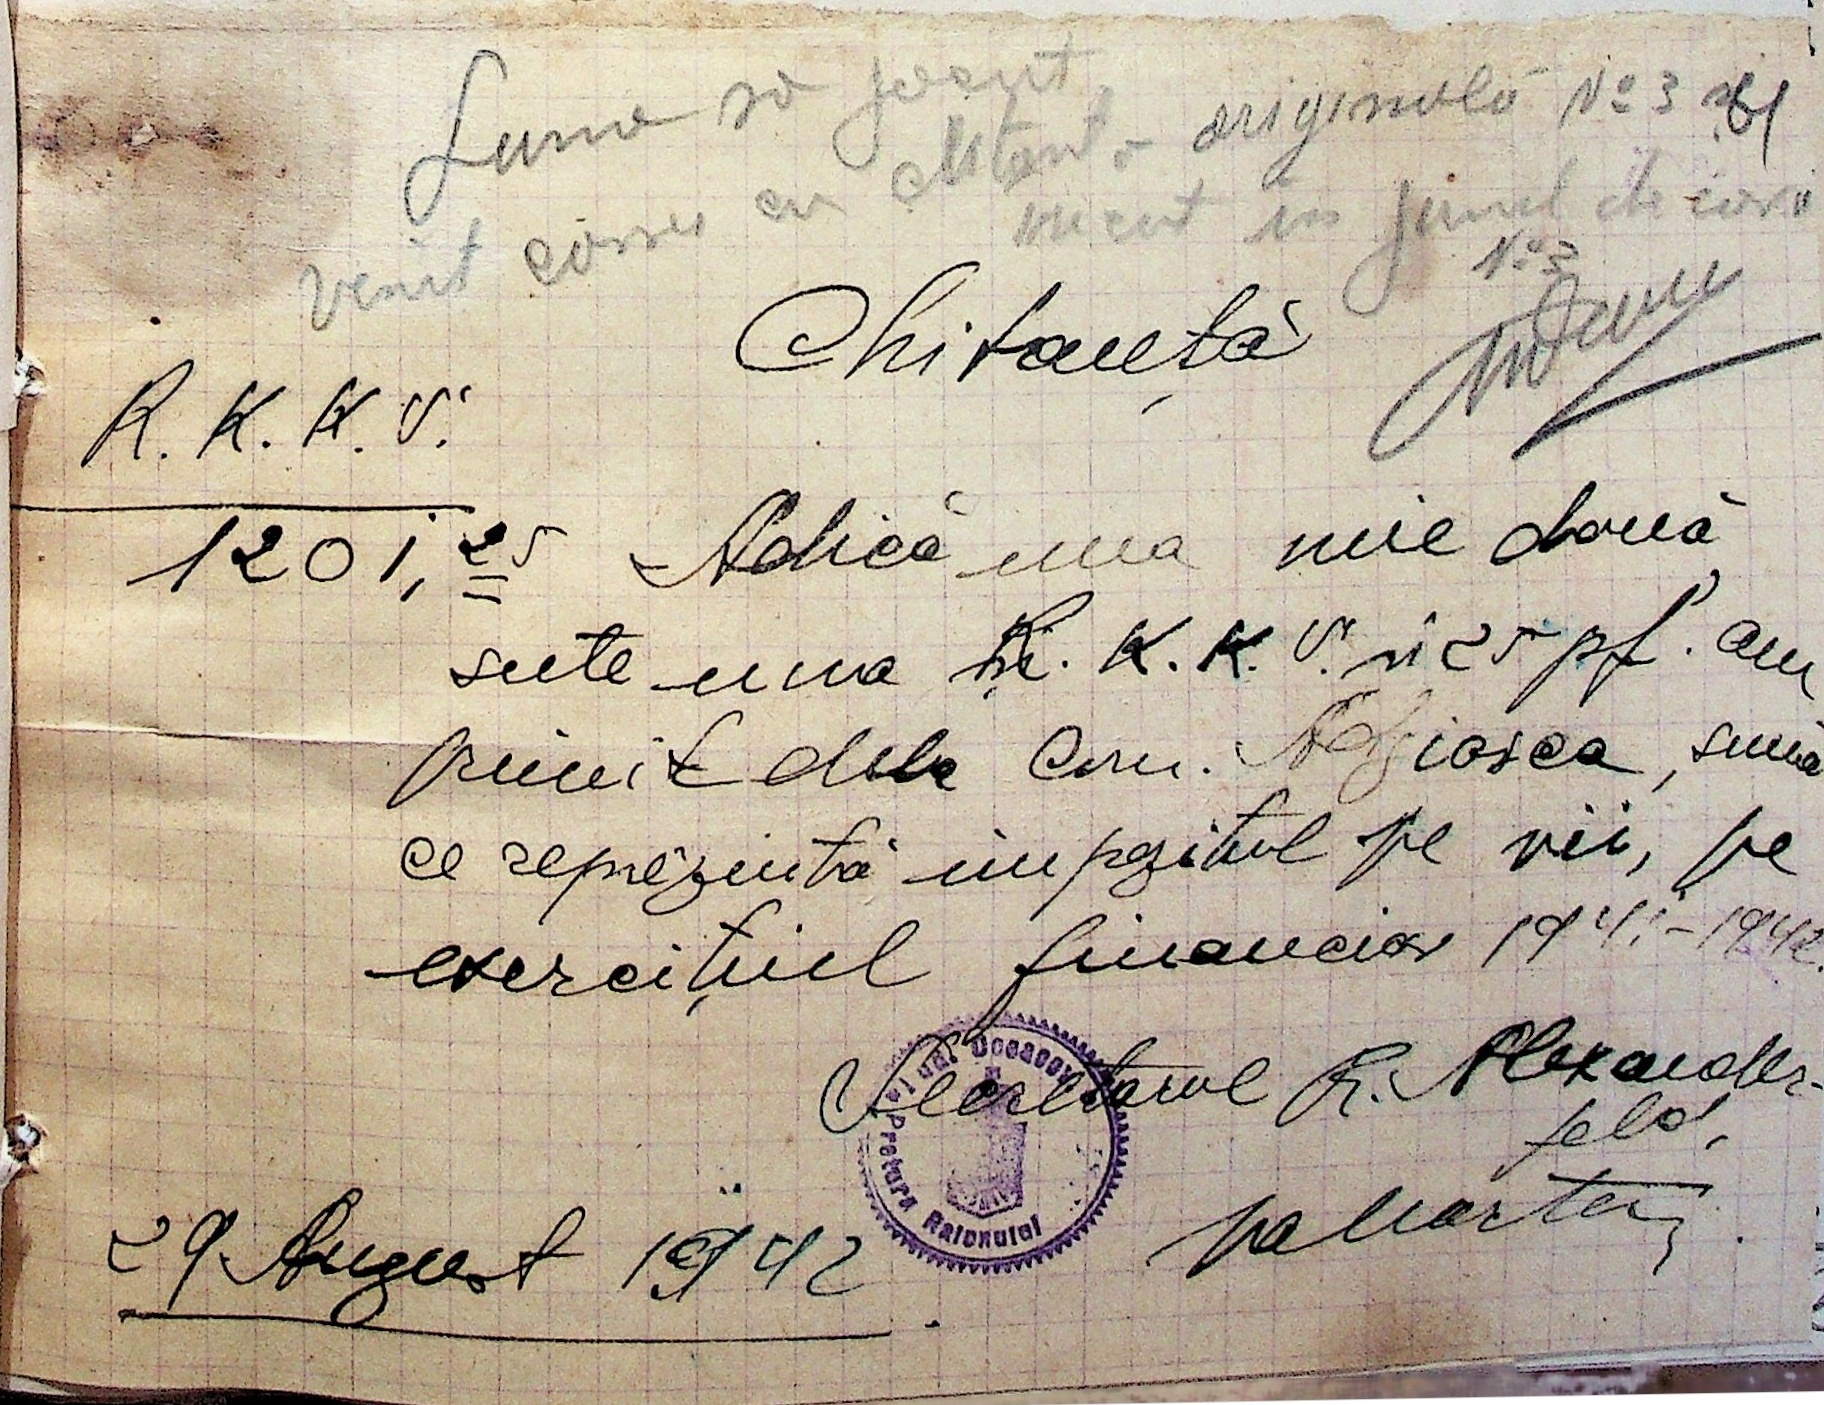 Suma s'a
venit cassei cu chitanta originală No 3
în jurnal de casă
No 3
Chitanță
R. K. K. S.
1201,25 Adică una mie două
sute una R. K. K. S. și 25 pf. am
primit dela Com. Adjiasca, suma
ce reprezintă impozitul pe vii, pe
exercițiul financiar 1941-1942.
Secretarul R. Alexander-
feld,
29 August 1942
Pretura Raionului Oceacov